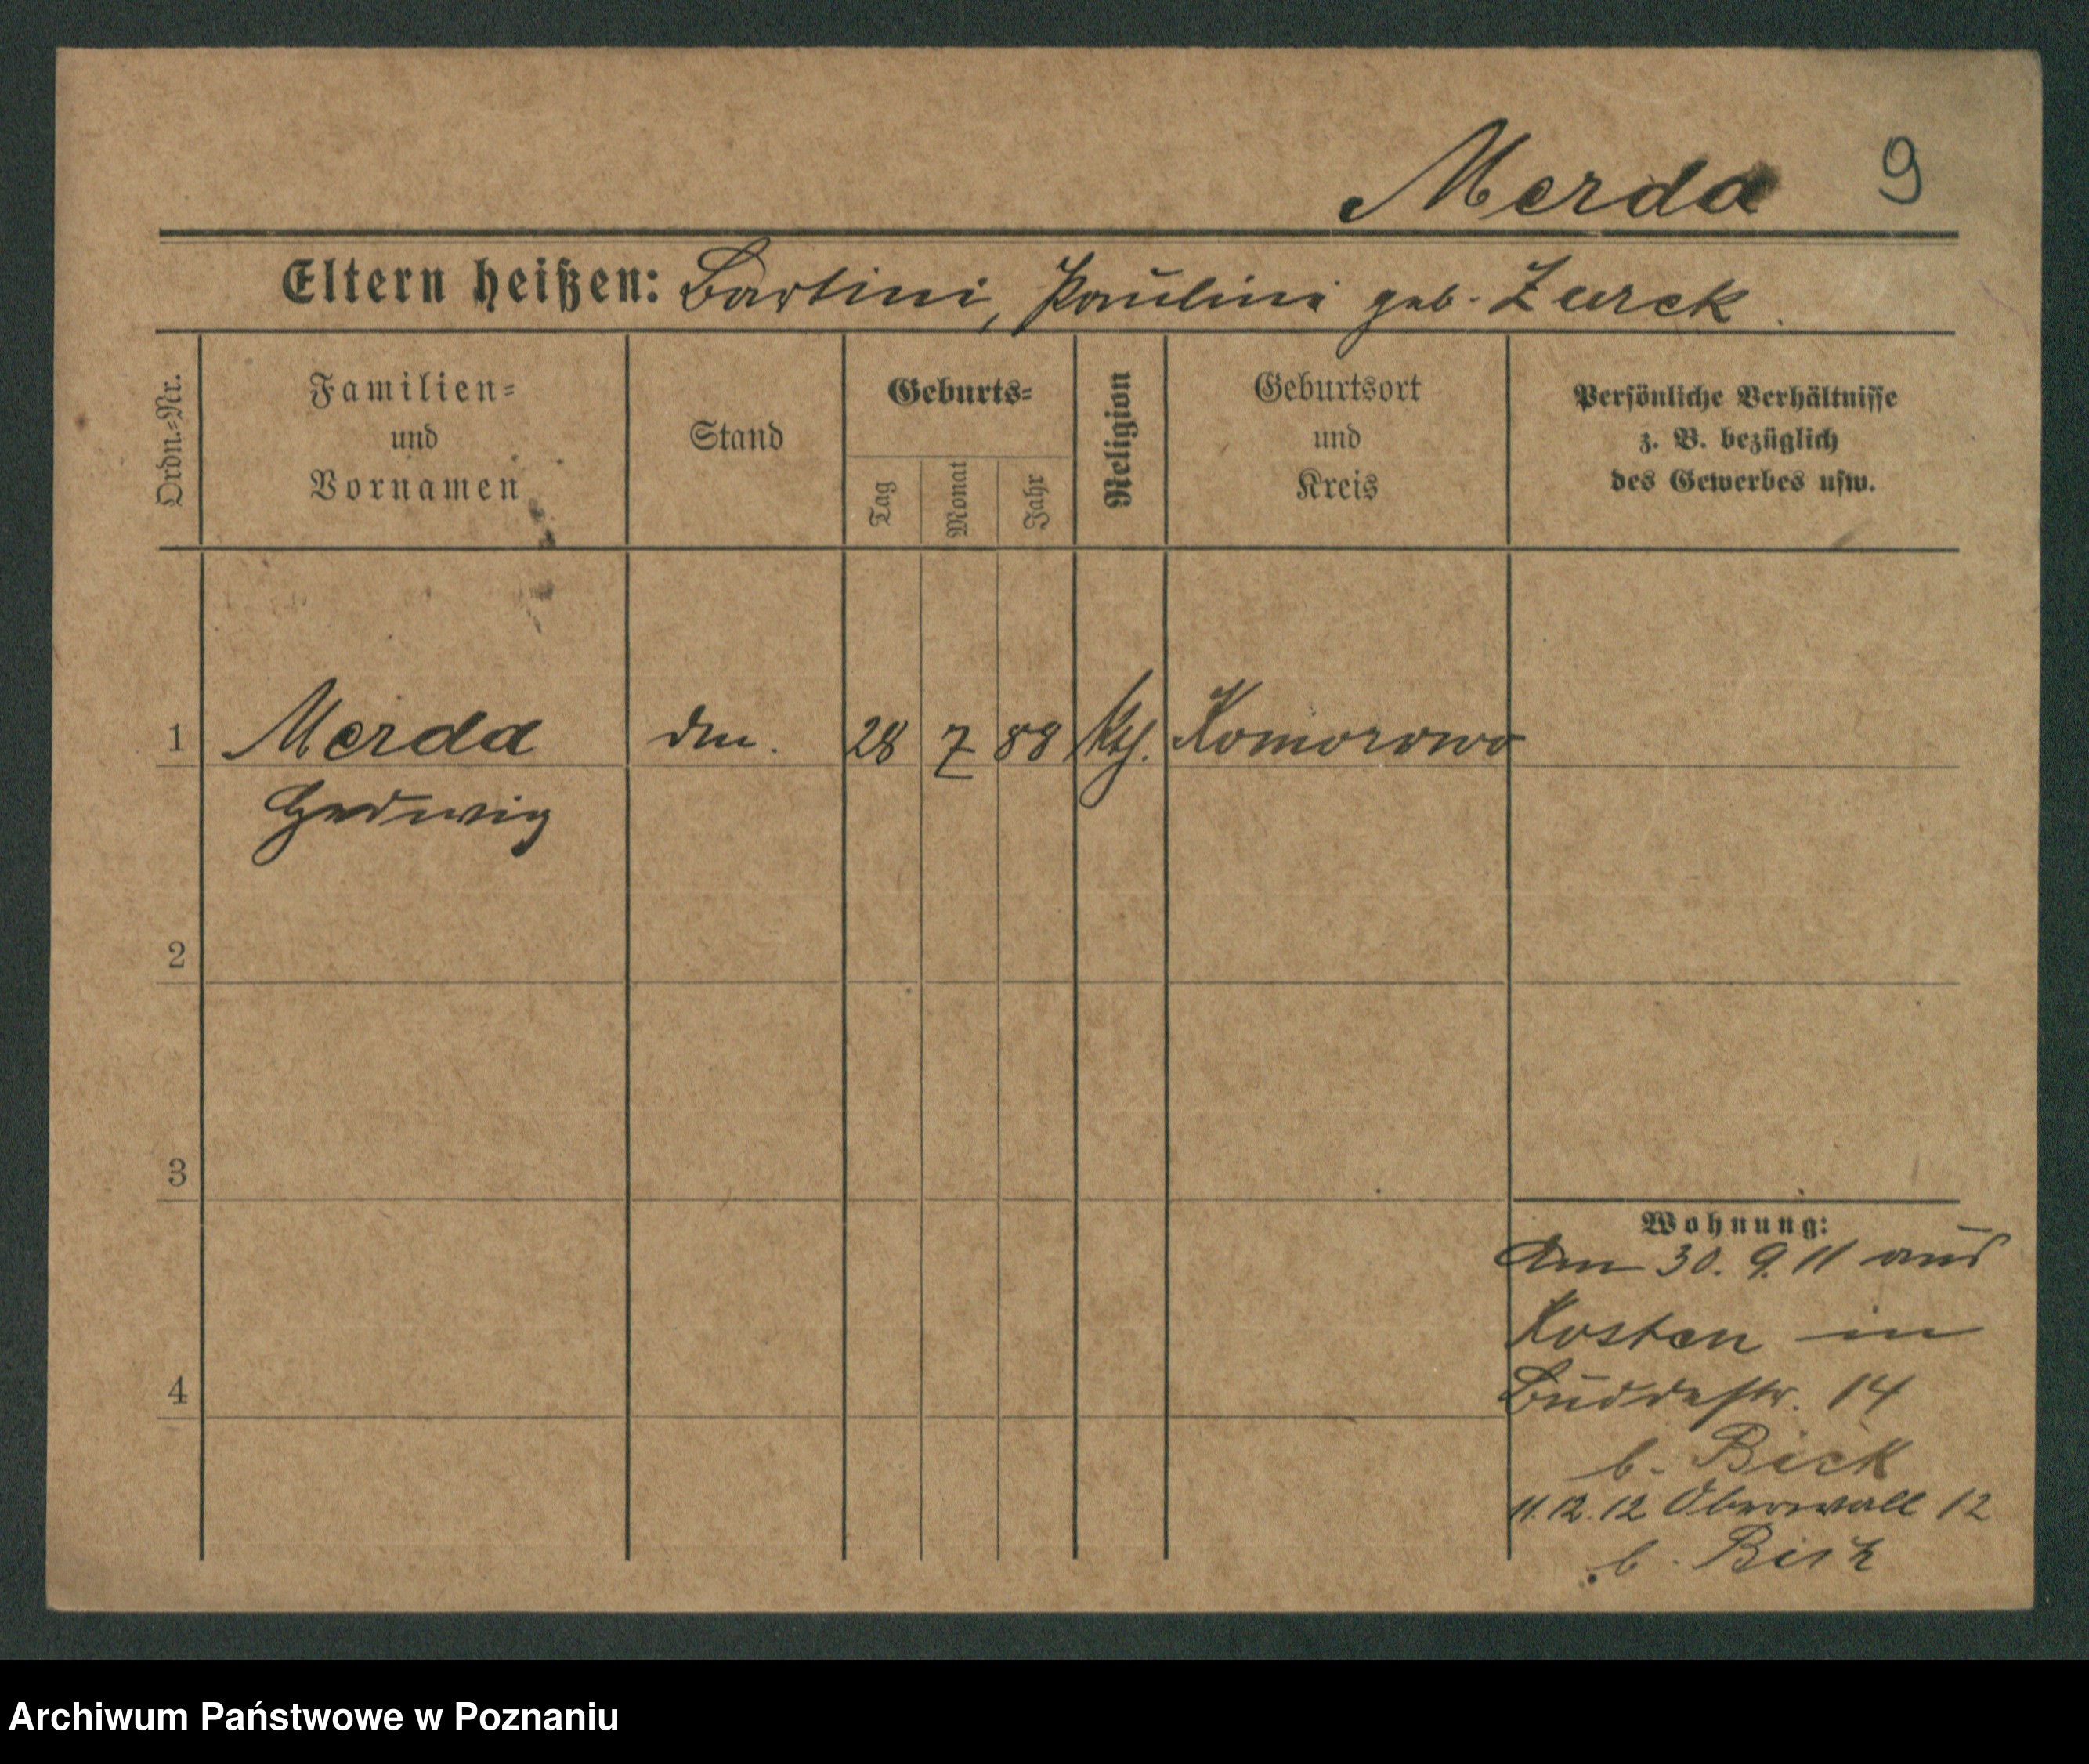 Merda 9
Eltern heißen: Bartini, Paulini geb. Zurek
Ordn.-Nr.
Familien-
und
Vornamen
Stand
Geburts-
Tag
Monat
Jahr
Religion
Geburtsort
und
Kreis
Persönliche Verhältnisse
z. B. bezüglich
des Gewerbes usw.
1 Merda 28 7 88 kth. Komorowo
Hedwig
2
3
4
Wohnung:
Am 30. 9. 11 aus
Kosten in
Buddestr. 14
b. Bick
11. 12. 12 Oberwall 12
b. Bick
Archiwum Państwowe w Poznaniu